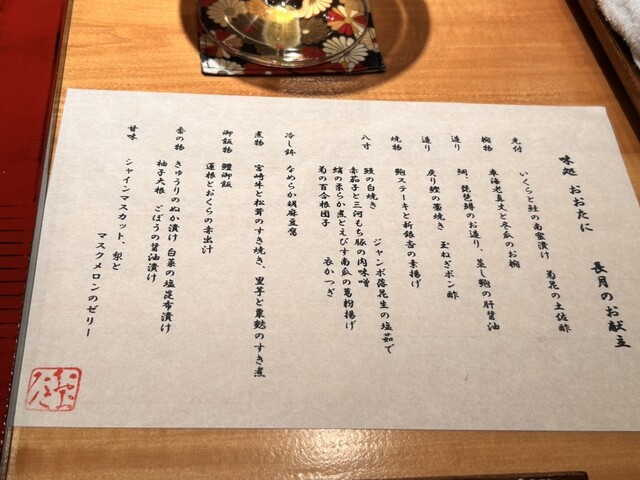 味処 おおたに 長月のお献立
先付 いくらと鮭の南蛮漬け 菊花の土佐酢
椀物 車海老真丈と冬瓜のお椀
造り 鯛、琵琶鱒のお造り、蒸し鮑の肝醤油
造り 戻り鰹の藁焼き 玉ねぎポン酢
焼物 鮑ステーキと新銀杏の素揚げ
八寸 鰻の白焼き ジャンボ落花生の塩茹で
赤茄子と三河もち豚の肉味噌
蛸の柔らか煮とえびす南瓜の葛粉揚げ
菊の百合根団子 衣かつぎ
冷し鉢 なめらか胡麻豆腐
煮物 宮崎牛と松茸のすき焼き、里芋と粟麩のすき煮
御飯物 鰻御飯
蓮根とおくらの赤出汁
香の物 きゅうりのぬか漬け 白菜の塩昆布漬け
柚子大根 ごぼうの醤油漬け
甘味 シャインマスカット、梨と
マスクメロンのゼリー